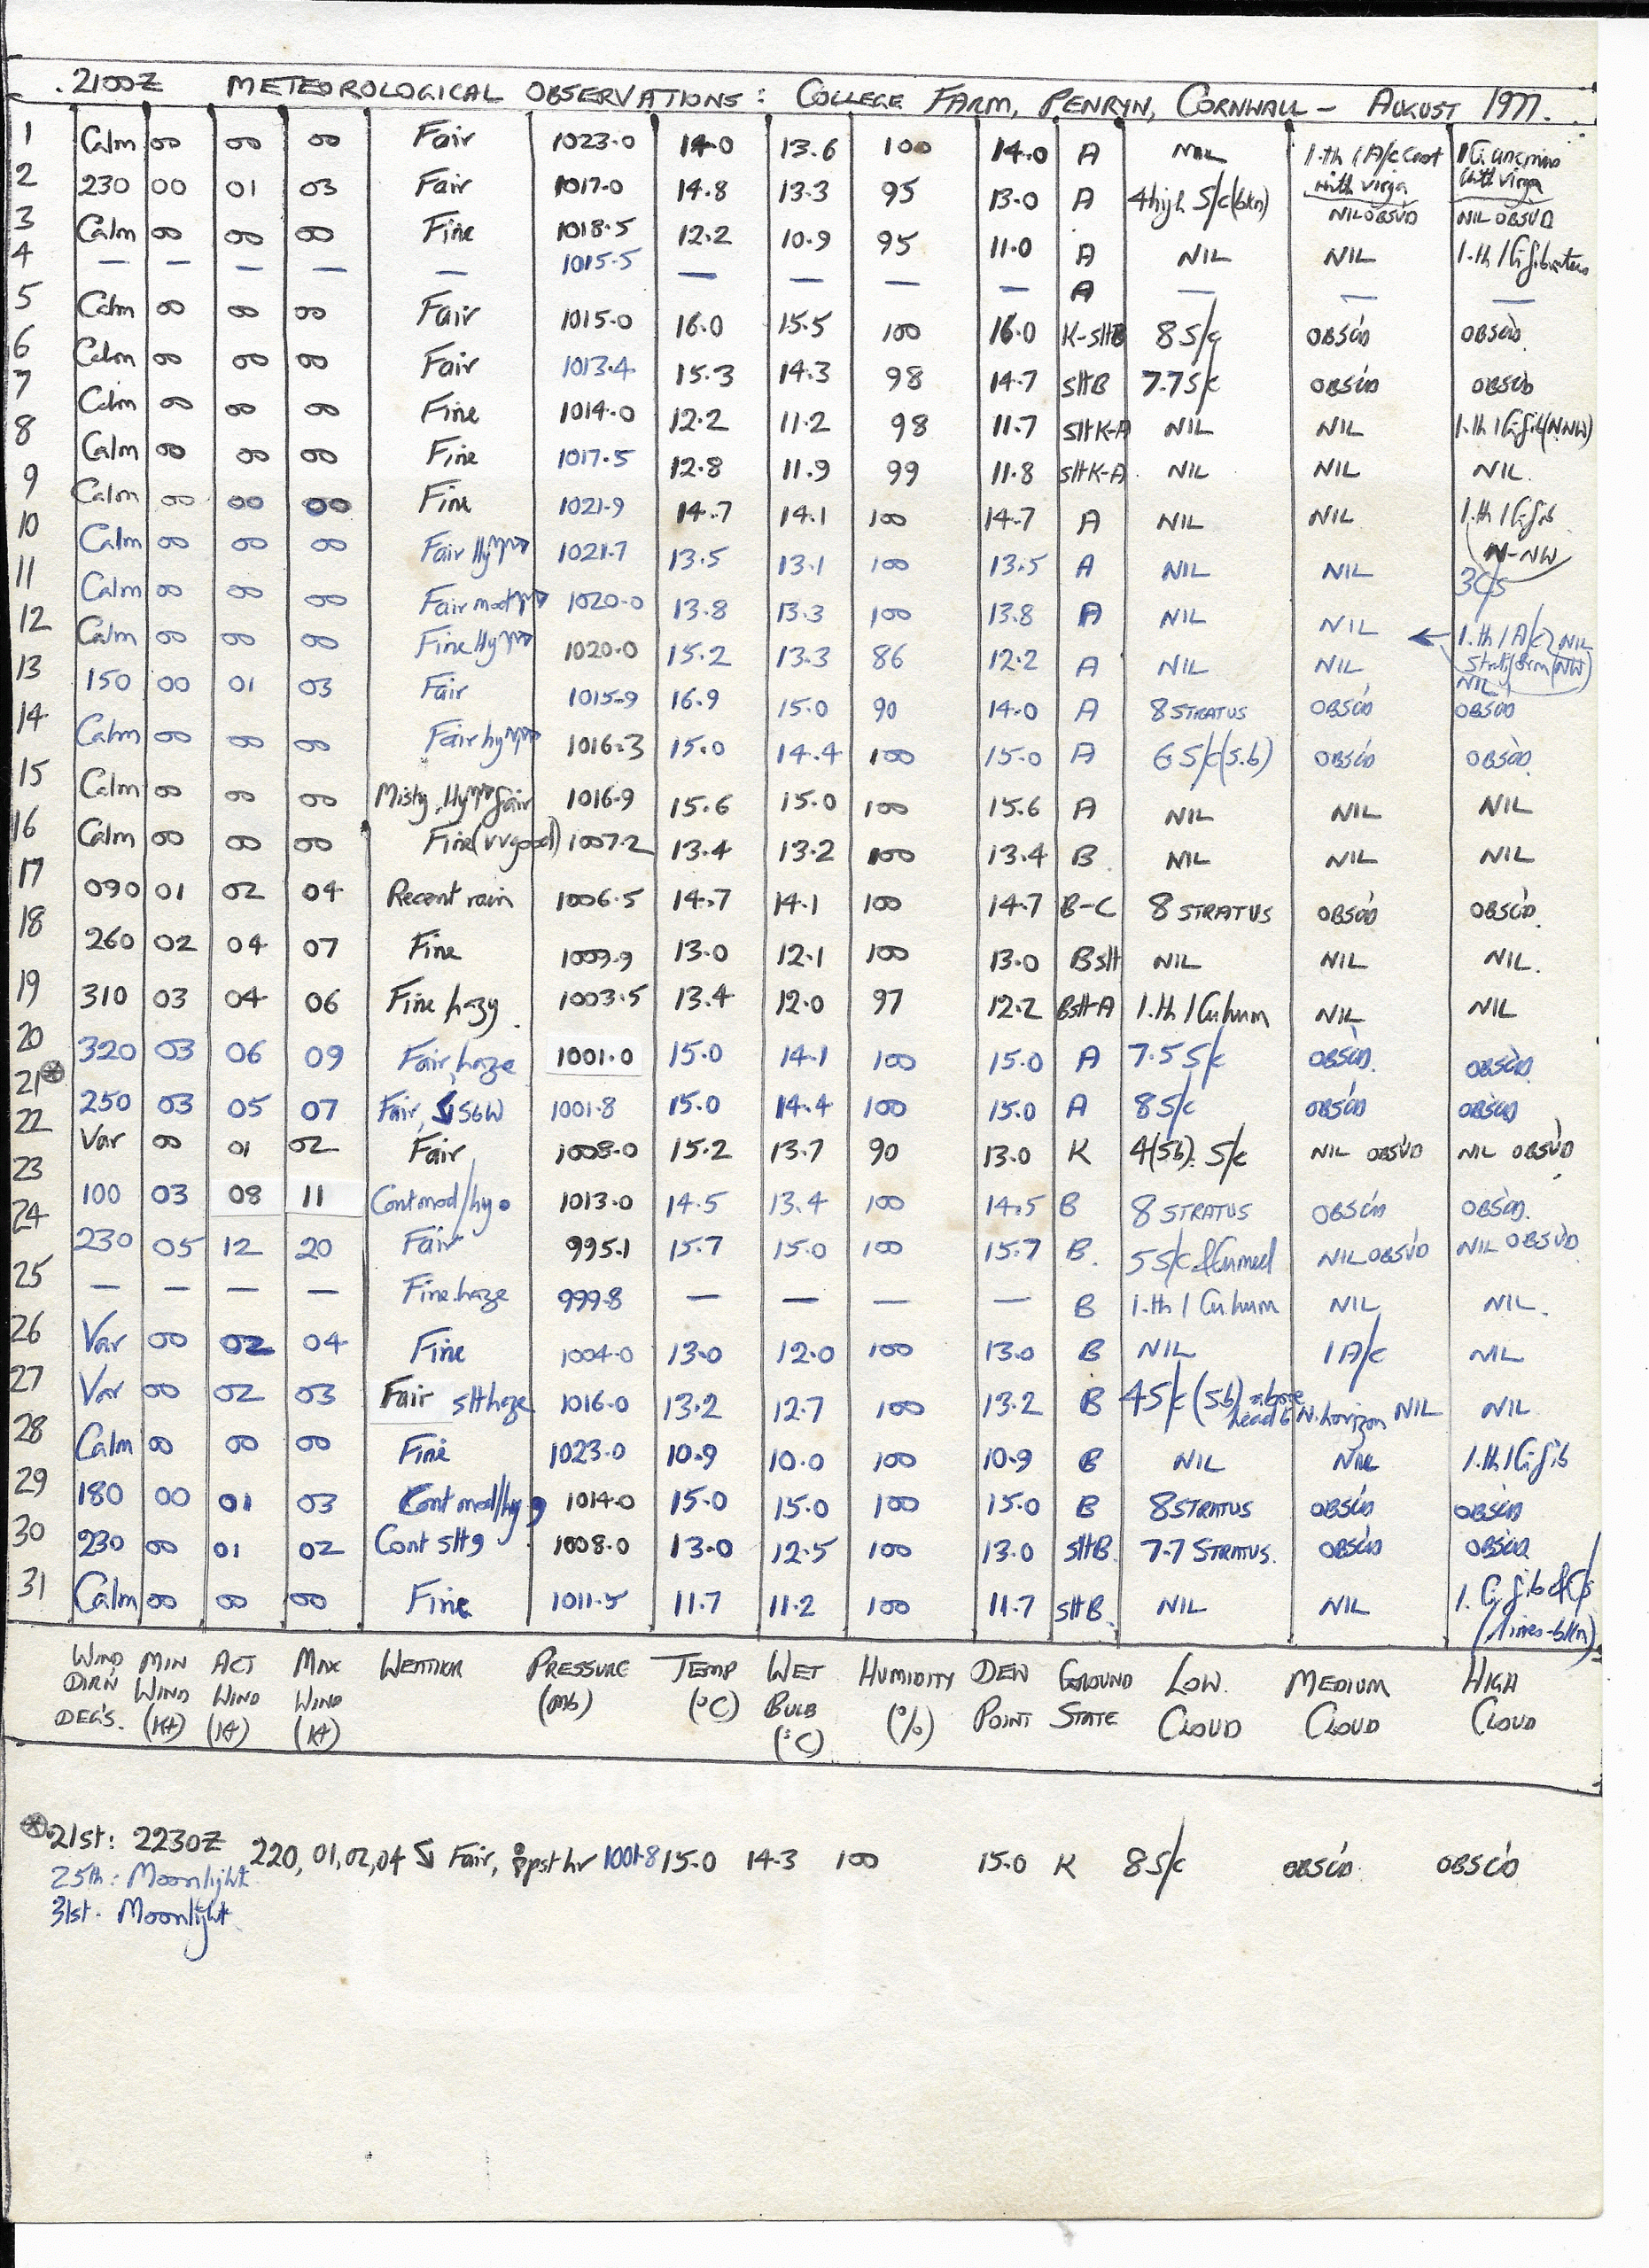 2100Z METEOROLOGICAL OBSERVATIONS: COLLEGE FARM, PENRYN, CORNWALL - AUGUST 1977.
1 Calm 00 00 00 Fair 1023.0 14.0 13.6 100 14.0 A NIL 1.th 1 A/c Cast with virga 1 Ci uncinus with virga
2 230 00 01 03 Fair 1017.0 14.8 13.3 95 13.0 A 4 high S/c (bkn) NIL OBSV'D NIL OBSV'D
3 Calm 00 00 00 Fine 1018.5 12.2 10.9 95 11.0 A NIL NIL 1.th 1 Ci fibratus
4 — — — — — 1015.5 — — — — A — — —
5 Calm 00 00 00 Fair 1015.0 16.0 15.5 100 16.0 K-SltB 8 S/c OBSC'D OBSC'D
6 Calm 00 00 00 Fair 1013.4 15.3 14.3 98 14.7 sltB 7.7 S/c OBSC'D OBSC'D
7 Calm 00 00 00 Fine 1014.0 12.2 11.2 98 11.7 SltK-A NIL NIL 1.th 1 Ci fib (NNW)
8 Calm 00 00 00 Fine 1017.5 12.8 11.9 99 11.8 SltK-A NIL NIL NIL.
9 Calm 00 00 00 Fine 1021.9 14.7 14.1 100 14.7 A NIL NIL 1.th 1 Ci fib N-NW
10 Calm 00 00 00 Fair 1021.7 13.5 13.1 100 13.5 A NIL NIL 3 C/s
11 Calm 00 00 00 Fair mod 1020.0 13.8 13.3 100 13.8 A NIL NIL ← 1.th 1 A/c stratiform (NW) NIL
12 Calm 00 00 00 Fine 1020.0 15.2 13.3 86 12.2 A NIL NIL NIL
13 150 00 01 03 Fair 1015.9 16.9 15.0 90 14.0 A 8 STRATUS OBSC'D OBSC'D
14 Calm 00 00 00 Fair 1016.3 15.0 14.4 100 15.0 A 6 S/c (S.b) OBSC'D OBSC'D
15 Calm 00 00 00 Misty, fair 1016.9 15.6 15.0 100 15.6 A NIL NIL NIL
16 Calm 00 00 00 Fine (vv good) 1007.2 13.4 13.2 100 13.4 B NIL NIL NIL
17 090 01 02 04 Recent rain 1006.5 14.7 14.1 100 14.7 B-C 8 STRATUS OBSC'D OBSC'D.
18 260 02 04 07 Fine 1009.9 13.0 12.1 100 13.0 Bslt NIL NIL NIL.
19 310 03 04 06 Fine hazy. 1003.5 13.4 12.0 97 12.2 Bslt-A 1.th 1 Cu hum NIL NIL
20 320 03 06 09 Fair, haze 1001.0 15.0 14.1 100 15.0 A 7.5 S/c OBSC'D. OBSC'D.
21⊛ 250 03 05 07 Fair, S&W 1001.8 15.0 14.4 100 15.0 A 8 S/c OBSC'D OBSC'D
22 Var 00 01 02 Fair 1008.0 15.2 13.7 90 13.0 K 4 (Sb). S/c NIL OBSV'D NIL OBSV'D
23 100 03 08 11 Cont mod/hy 1013.0 14.5 13.4 100 14.5 B 8 STRATUS OBSC'D OBSC'D.
24 230 05 12 20 Fair 995.1 15.7 15.0 100 15.7 B. 5 S/c & Cu med NIL OBSV'D NIL OBSV'D
25 — — — — Fine haze 999.8 — — — — B 1.th 1 Cu hum NIL NIL.
26 Var 00 02 04 Fine 1004.0 13.0 12.0 100 13.0 B NIL 1 A/c NIL
27 Var 00 02 03 Fair slt haze 1016.0 13.2 12.7 100 13.2 B 4 S/c (Sb) above head & N. horizon NIL NIL
28 Calm 00 00 00 Fine 1023.0 10.9 10.0 100 10.9 B NIL NIL 1.th 1 Ci fib
29 180 00 01 03 Cont mod/hy 1014.0 15.0 15.0 100 15.0 B 8 STRATUS OBSC'D OBSC'D
30 230 00 01 02 Cont slt 1008.0 13.0 12.5 100 13.0 sltB. 7.7 STRATUS. OBSC'D OBSC'D
31 Calm 00 00 00 Fine 1011.5 11.7 11.2 100 11.7 sltB. NIL NIL 1. Ci fib & C/s (lines-bkn)
WIND DIR'N DEG'S. MIN WIND (Kt) ACT WIND (Kt) MAX WIND (Kt) WEATHER PRESSURE (mb) TEMP (°C) WET BULB (°C) HUMIDITY (%) DEW POINT GROUND STATE LOW. CLOUD MEDIUM CLOUD HIGH CLOUD
⊛ 21st: 2230Z 220, 01, 02, 04 Fair, pst hr 1001.8 15.0 14.3 100 15.0 K 8 S/c OBSC'D. OBSC'D
25th: Moonlight
31st. Moonlight.